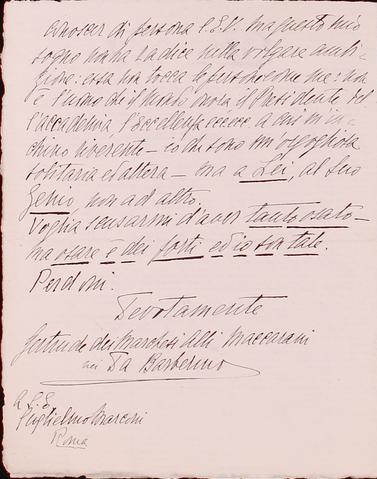 conoscer di persona l'E.V. ma questo mio
sogno non ha radice nella volgare ambi-
zione: essa non tocca le persone come me: non
è l'uomo che il Mondo onora il Presidente del
l'accademia, l'Eccellenza a cui m'in-
chino riverente - io che sono orgogliosa
solitaria ed altera - ma a Lei, al Suo
Genio, non ad altro.
Voglia scusarmi d'aver tanto osato -
ma osare è dei forti ed io son tale.
Perdoni.
Devotamente
Gertrude dei Marchesi Alli Maccarani
nei Da Barberino
A S.E.
Guglielmo Marconi
Roma